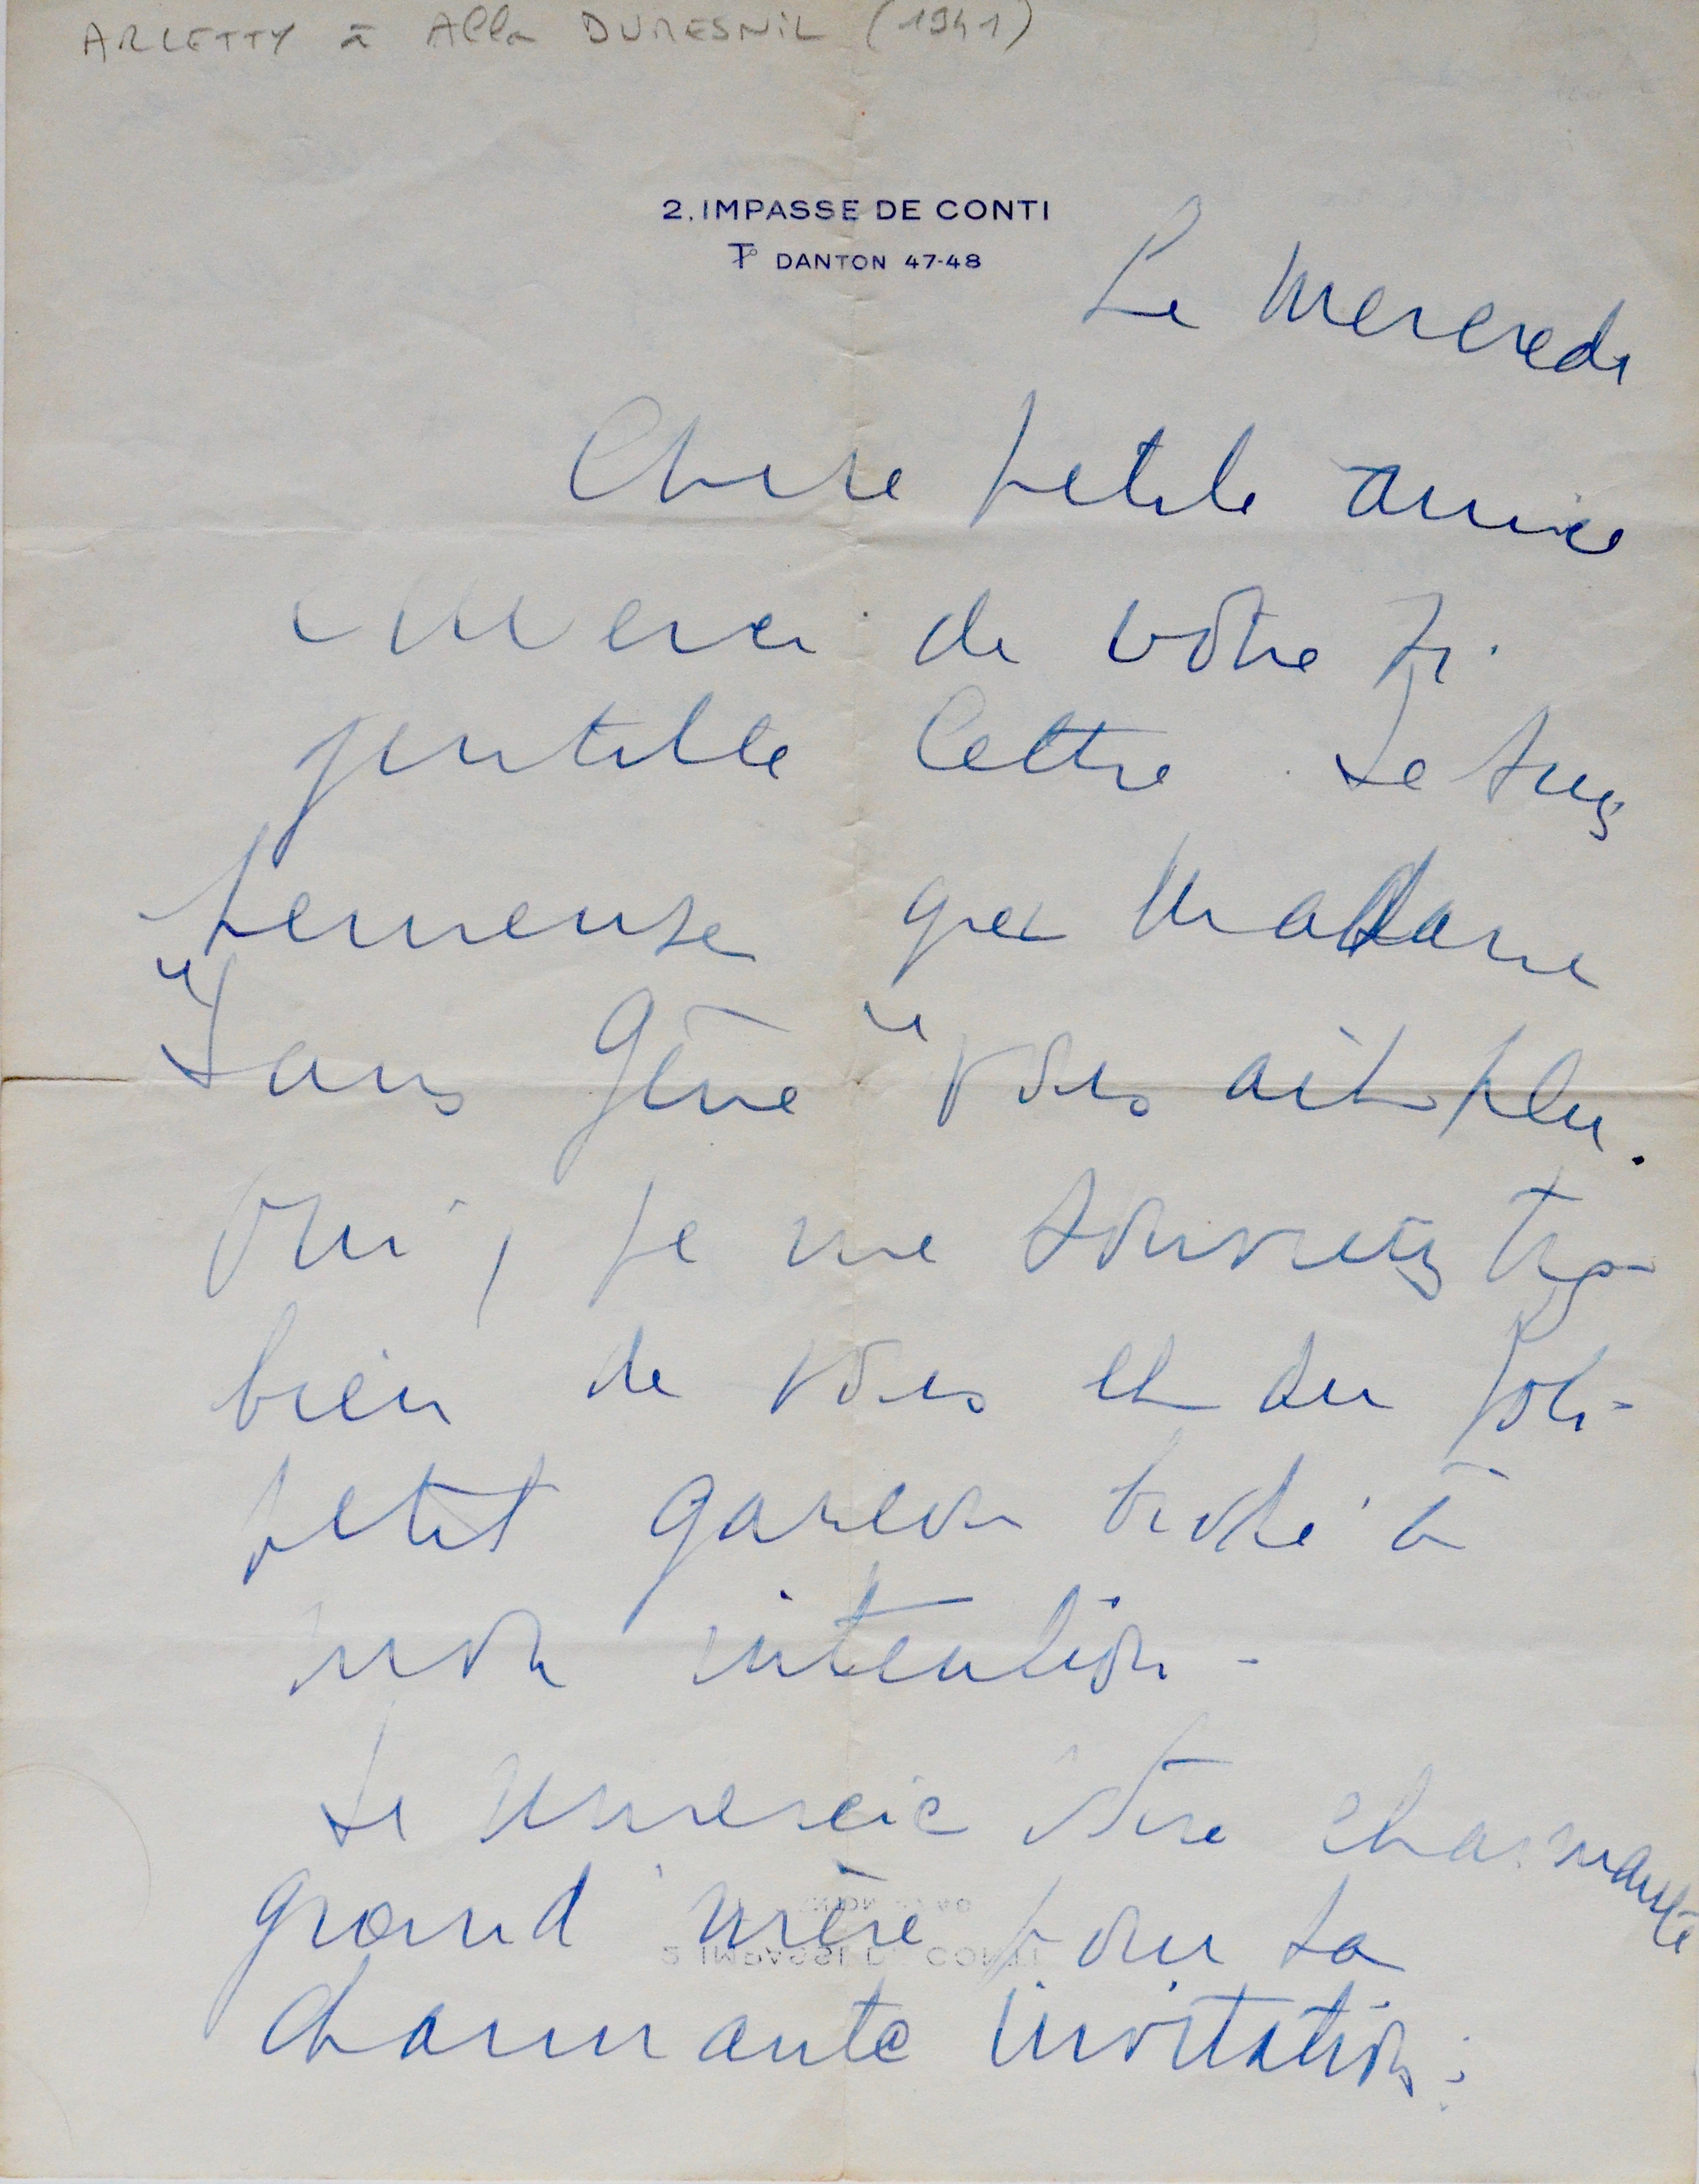 ARLETTY à Alla DUMESNIL (1941)
2. IMPASSE DE CONTI
Tº DANTON 47-48
Le Mercredi
Chere petite amie
merci de votre si
gentille lettre. Je suis
heureuse que Madame
"Sans Gêne" vous ait plu.
Oui, je me souviens très
bien de vous et du joli
petit garcon brodé à
mon intention -
Je remercie votre charmante
grand'mère pour sa
charmante invitation :